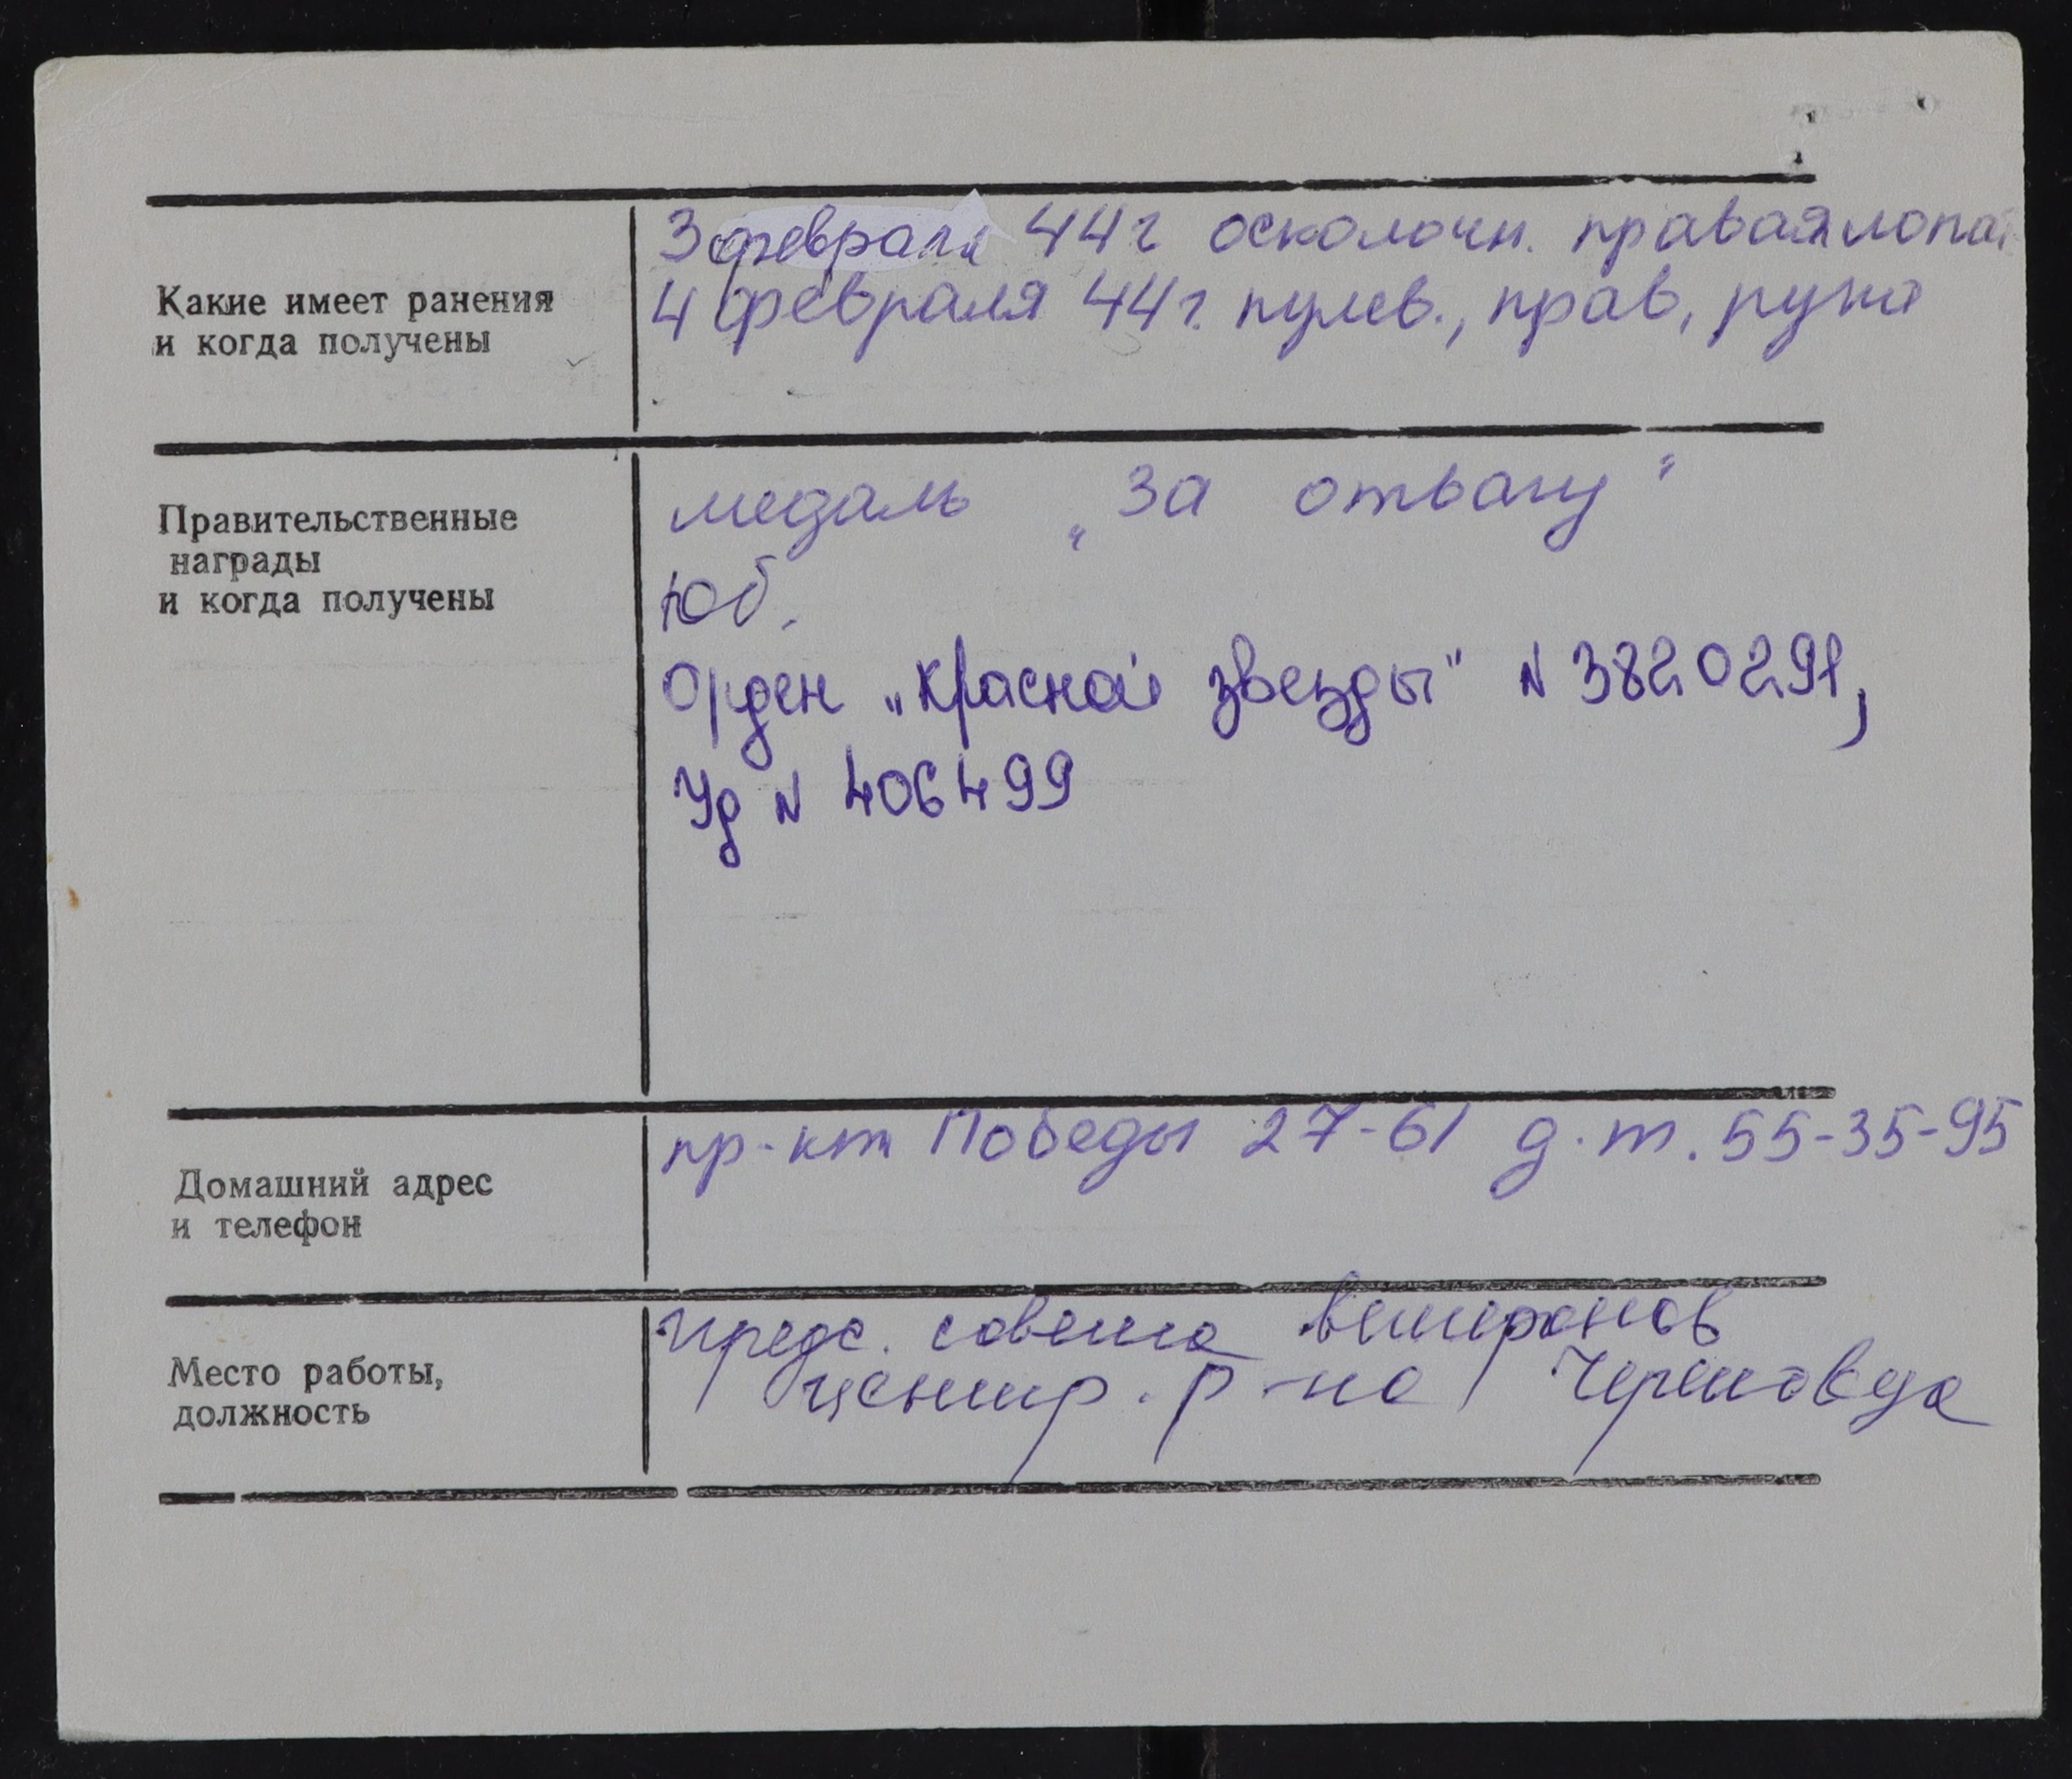 Какие имеет ранения
и когда получены
3 февраля 44г осколочн. правая лопат
4 февраля 44г. пулев., прав, рука
Правительственные
награды
и когда получены
медаль „За отвагу"
Юб.
Орден „Красной звезды" N 3820291,
Уд N 406499
Домашний адрес
и телефон
пр-кт Победы 27-61 д.т. 55-35-95
Место работы,
должность
предс. совета ветеранов
центр. р-на Череповца